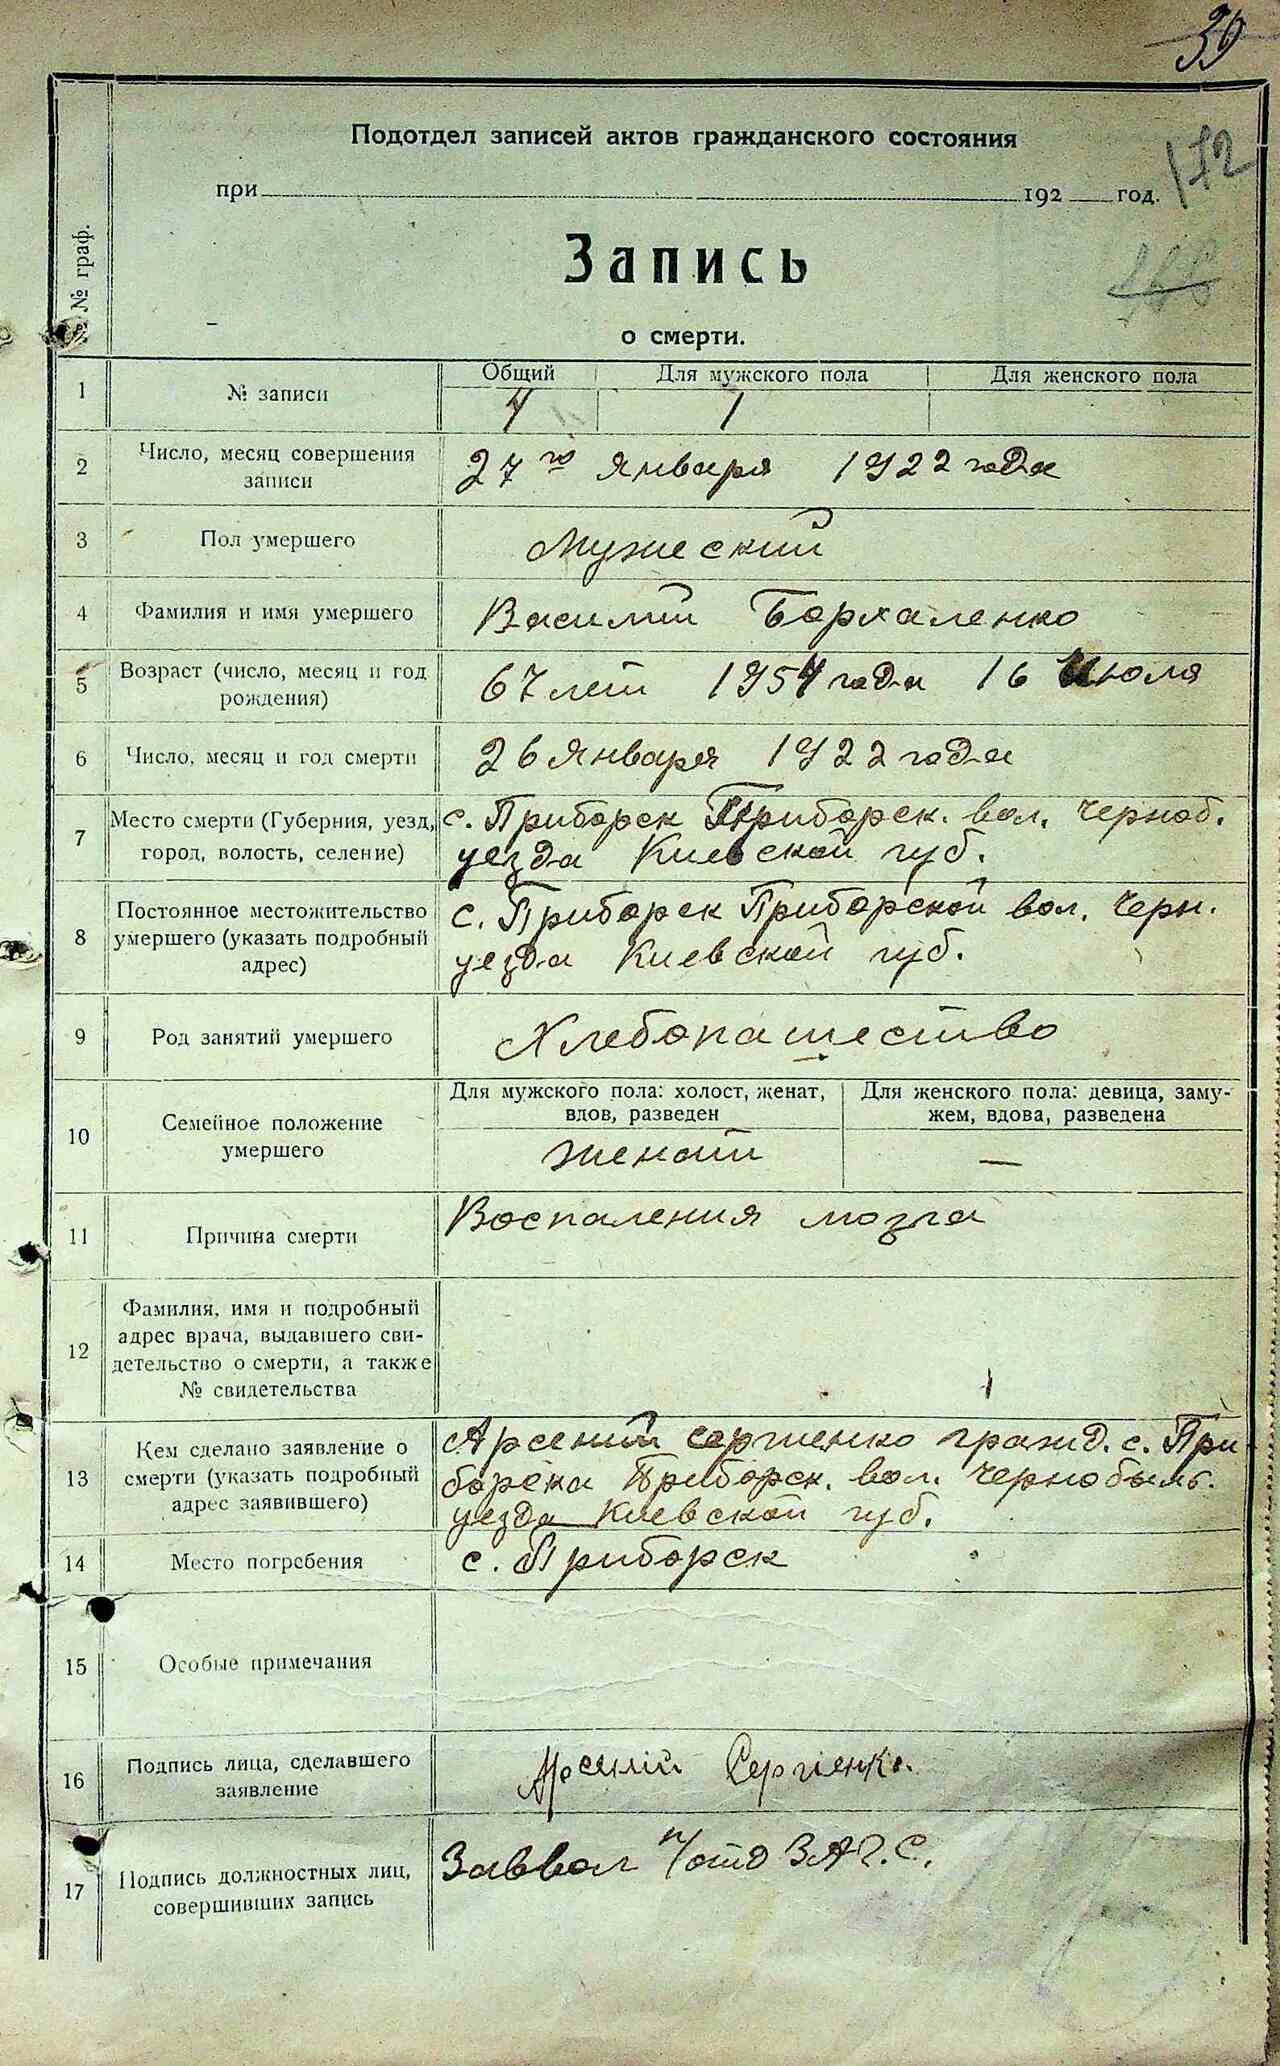 39
Подотдел записей актов гражданского состояния
172
при 192 год.
Запись
о смерти.
№ граф.
1 № записи
Общий Для мужского пола Для женского пола
4 1
2 Число, месяц совершения записи
27го января 1922 года
3 Пол умершего
Мужеский
4 Фамилия и имя умершего
Василий Бархаленко
5 Возраст (число, месяц и год рождения)
67 лет 1954 года 16 Июля
6 Число, месяц и год смерти
26 января 1922 года
7 Место смерти (Губерния, уезд, город, волость, селение)
с. Приборск Приборск. вол. Черноб.
уезда Киевской губ.
8 Постоянное местожительство умершего (указать подробный адрес)
с. Приборск Приборской вол. Черн.
уезда Киевской губ.
9 Род занятий умершего
Хлебопашество
10 Семейное положение умершего
Для мужского пола: холост, женат, вдов, разведен
Для женского пола: девица, замужем, вдова, разведена
женат —
11 Причина смерти
Воспаления мозга
12 Фамилия, имя и подробный адрес врача, выдавшего свидетельство о смерти, а также № свидетельства
13 Кем сделано заявление о смерти (указать подробный адрес заявившего)
Арсений Сергиенко гражд. с. При-
борска Приборск. вол. Чернобыль.
уезда Киевской губ.
14 Место погребения
с. Приборск
15 Особые примечания
16 Подпись лица, сделавшего заявление
Арсеній Сергіенко.
17 Подпись должностных лиц, совершивших запись
Заввол п/отд З.А.Г.С.